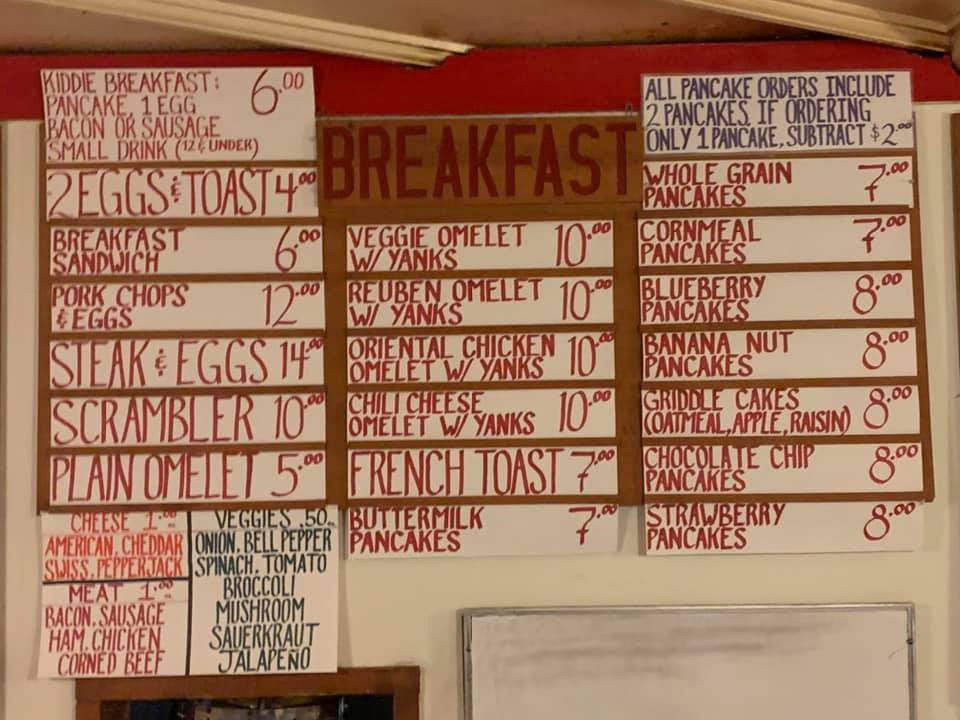 KIDDIE BREAKFAST: 6.00
PANCAKE, 1 EGG
BACON OR SAUSAGE
SMALL DRINK (12 & UNDER)
2 EGGS & TOAST 4.00
BREAKFAST
SANDWICH 6.00
PORK CHOPS
& EGGS 12.00
STEAK & EGGS 14.00
SCRAMBLER 10.00
PLAIN OMELET 5.00
CHEESE 1.00
AMERICAN, CHEDDAR
SWISS, PEPPERJACK
MEAT 1.00
BACON, SAUSAGE
HAM, CHICKEN
CORNED BEEF
VEGGIES .50
ONION, BELL PEPPER
SPINACH, TOMATO
BROCCOLI
MUSHROOM
SAUERKRAUT
JALAPEÑO
BREAKFAST
VEGGIE OMELET
W/ YANKS 10.00
REUBEN OMELET
W/ YANKS 10.00
ORIENTAL CHICKEN
OMELET W/ YANKS 10.00
CHILI CHEESE
OMELET W/ YANKS 10.00
FRENCH TOAST 7.00
BUTTERMILK
PANCAKES 7.00
ALL PANCAKE ORDERS INCLUDE
2 PANCAKES. IF ORDERING
ONLY 1 PANCAKE, SUBTRACT $2.00
WHOLE GRAIN
PANCAKES 7.00
CORNMEAL
PANCAKES 7.00
BLUEBERRY
PANCAKES 8.00
BANANA NUT
PANCAKES 8.00
GRIDDLE CAKES
(OATMEAL, APPLE, RAISIN) 8.00
CHOCOLATE CHIP
PANCAKES 8.00
STRAWBERRY
PANCAKES 8.00